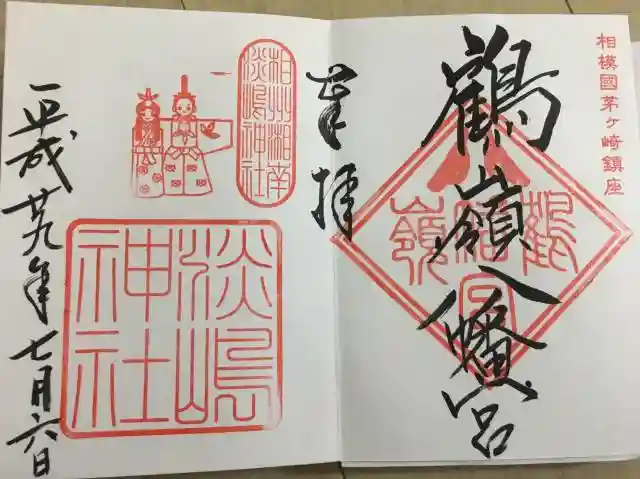 相模國茅ヶ崎鎮座
鶴嶺八幡宮
鶴嶺
奉拝
相州湘南
淡嶋神社
淡嶋
神社
平成廿九年七月六日